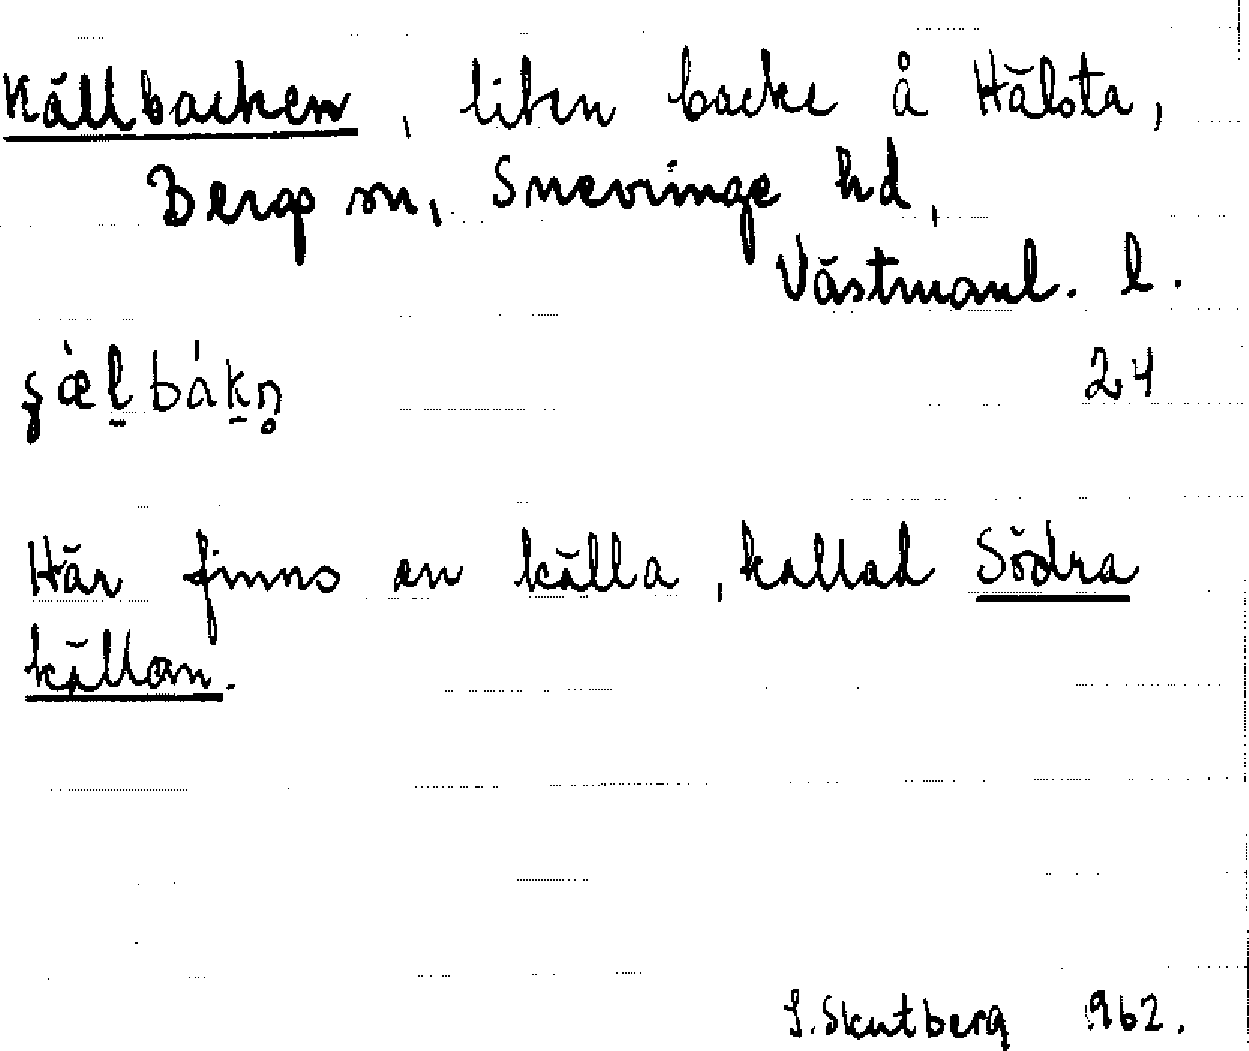 Källbacken, liten backe å Hälsta,
Bergs sn, Snevringe hd,
Västmanl. l.
24
Här finns en källa, kallad Södra
källan.
S. Skutberg 1962.